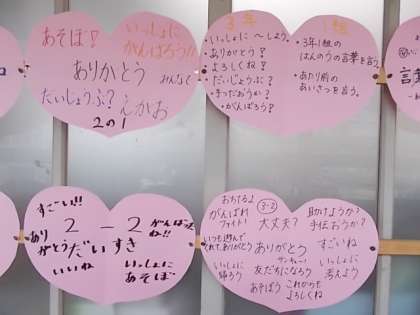 あそぼ!
いっしょに
がんばろう!!
ありがとう
みんなで
だいじょうぶ?
えがお
2の1
3年 1組
・いっしょに〜しよう?
・ありがとう?
・よろしくね?
・だいじょうぶ?
・がんばろう?
・3年1組の
はんのうの言葉を言う。
・あたり前の
あいさつを言う。
言葉
すごい!!
2-2
がんばったね!!
ありがとう
だいすき
いいね
いっしょに
あそぼ
がんばれ
ファイト!
2-3
大丈夫?
助けようか?
手伝おうか?
いつも遊んで
くれて、ありがとう
ありがとう
サンキュー!
すごいね
いっしょに
帰ろう
友だちになろう
いっしょに
考えよう
あそぼう
これからも
よろしくね